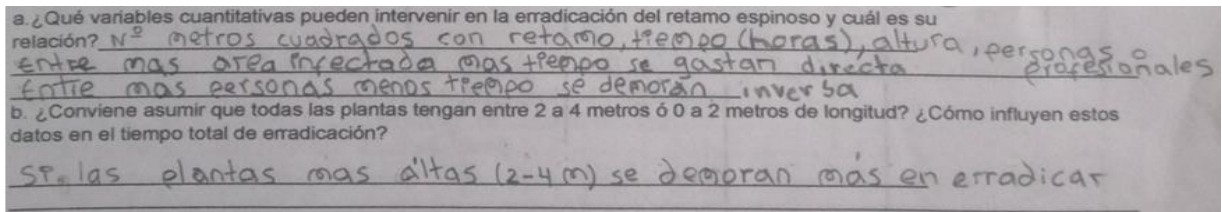 a. ¿Qué variables cuantitativas pueden intervenir en la erradicación del retamo espinoso y cuál es su
relación? Nº metros cuadrados con retamo, tiempo (horas), altura, personas o profesionales
Entre mas area infectada mas tiempo se gastan directa
Entre mas personas menos tiempo se demoran inversa
b. ¿Conviene asumir que todas las plantas tengan entre 2 a 4 metros ó 0 a 2 metros de longitud? ¿Cómo influyen estos
datos en el tiempo total de erradicación?
SI. las plantas mas altas (2-4 m) se demoran más en erradicar